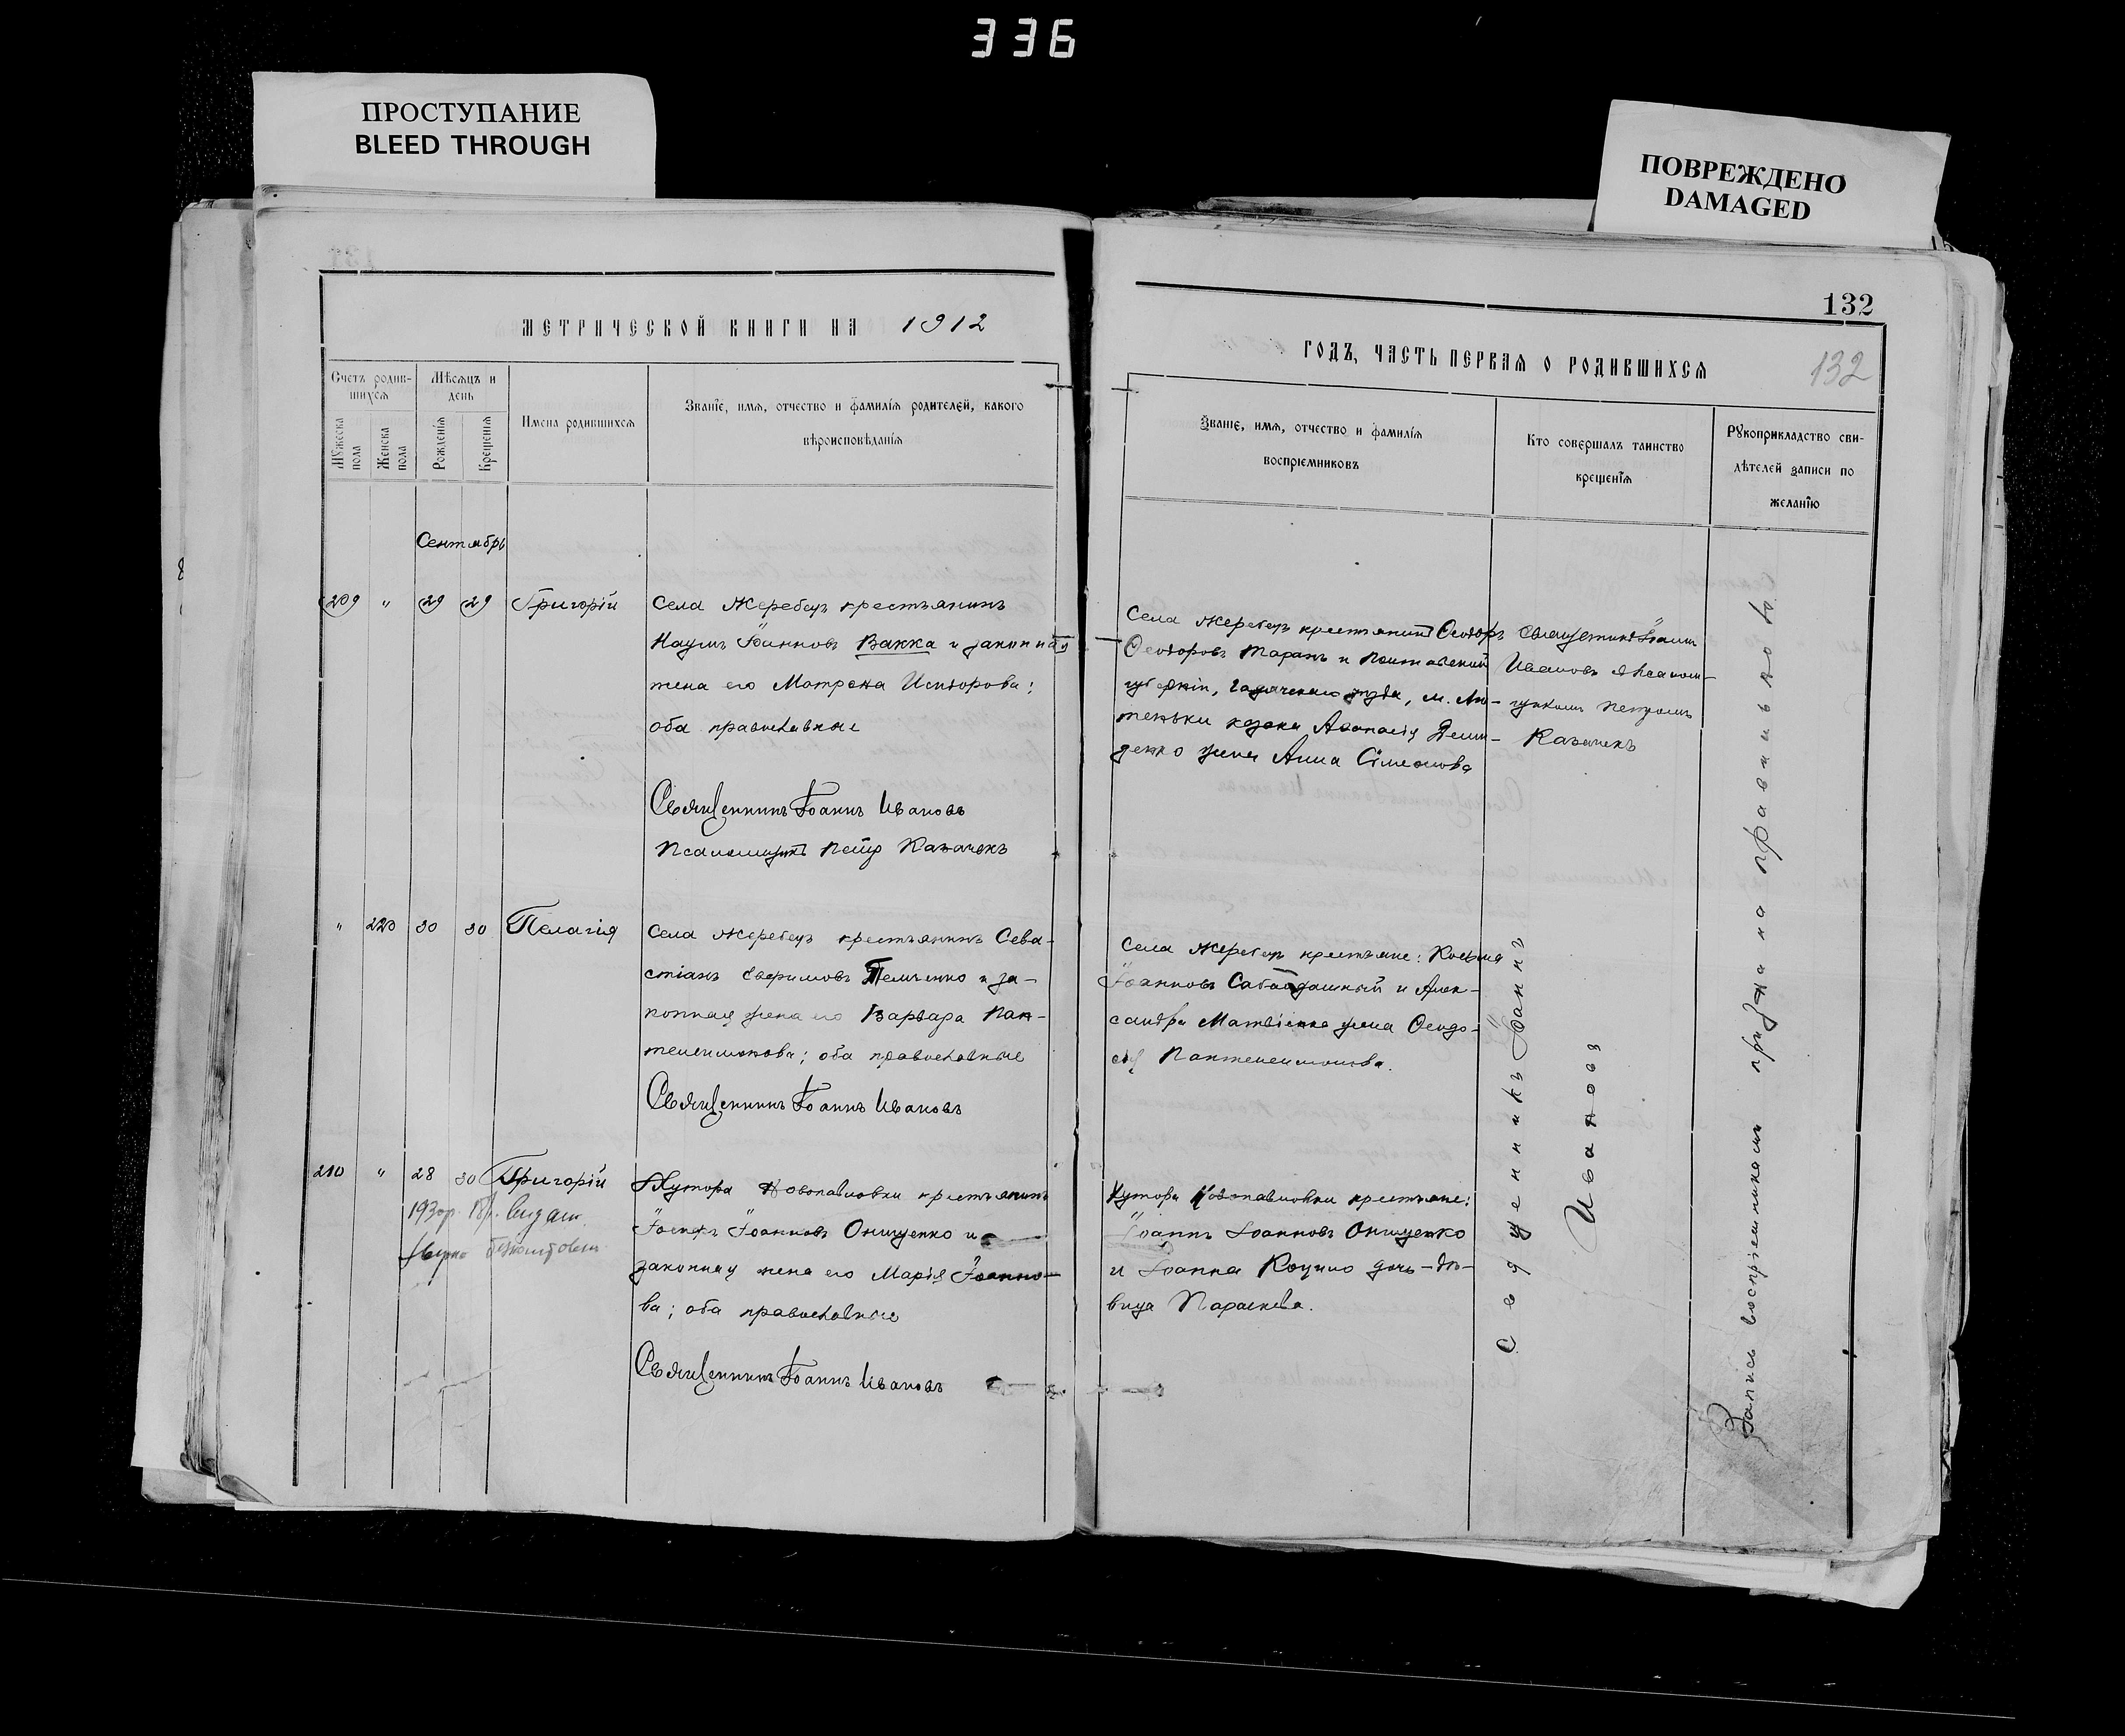 336
ПРОСТУПАНИЕ
BLEED THROUGH
ПОВРЕЖДЕНО
DAMAGED
132
МЕТРИЧЕСКОЙ КНИГИ НА 1912
ГОДЪ, ЧАСТЬ ПЕРВАЯ О РОДИВШИХСЯ
132
Счетъ родив-
шихся
Мѣсяцъ и
день
Мужеска
пола
Женска
пола
Рожденія
Крещенія
Имена родившихся
Званіе, имя, отчество и фамилія родителей, какого
вѣроисповѣданія
Званіе, имя, отчество и фамилія
воспріемниковъ
Кто совершалъ таинство
крещенія
Рукоприкладство сви-
дѣтелей записи по
желанію
Сентябрь
209 " 29 29 Григорій
Села Жеребецъ крестьянинъ
Наумъ Іоанновъ Вакка и законная
жена его Матрона Исидорова;
оба православные
Священникъ Іоаннъ Ивановъ
Псаломщикъ Петръ Казачекъ
Села Жеребецъ крестьянинъ Ѳеодоръ
Ѳеодоровъ Таранъ и Полтавской
губерніи, Гадячскаго уѣзда, м. Лю-
теньки козака Аѳанасія Деми-
денко жена Анна Симеонова
Священникъ Іоаннъ
Ивановъ съ псалом-
щикомъ Петромъ
Казачекъ
" 220 30 30 Пелагія
Села Жеребецъ крестьянинъ Сева-
стіанъ Евфимовъ Темченко и за-
конная жена его Варвара Пан-
телеимонова; оба православные
Священникъ Іоаннъ Ивановъ
Села Жеребецъ крестьяне: Косьма
Іоанновъ Сабадашный и Алек-
сандра Матвіенко жена Ѳеодо-
сія Пантелеимонова.
210 " 28 30 Григорій
1930р.
Хутора Новопавловки крестьянинъ
Іосифъ Іоанновъ Онищенко и
законная жена его Марія Іоанно-
ва; оба православные
Священникъ Іоаннъ Ивановъ
Хутора Новопавловки крестьяне:
Іоаннъ Іоанновъ Онищенко
и Іоанна Коцило дочь-дѣ-
вица Параскева.
Священникъ Іоаннъ
Ивановъ
Запись воспріемниками признана правильною